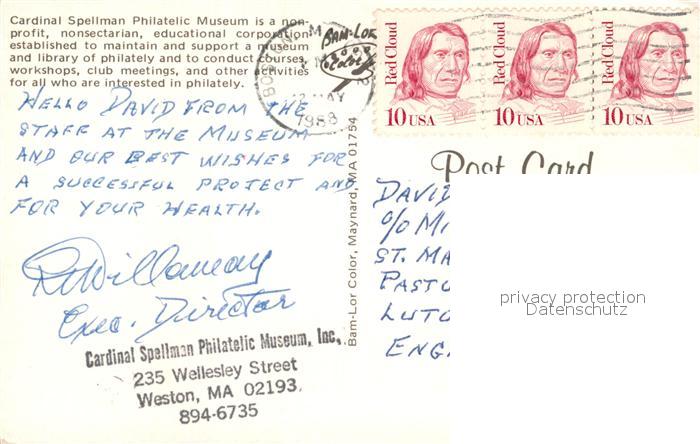 Cardinal Spellman Philatelic Museum is a non-
profit, nonsectarian, educational corporation
established to maintain and support a museum
and library of philately and to conduct courses,
workshops, club meetings, and other activities
for all who are interested in philately.
HELLO DAVID FROM THE
STAFF AT THE MUSEUM
AND OUR BEST WISHES FOR
A SUCCESSFUL PROJECT AND
FOR YOUR HEALTH.
Exec. Director
Cardinal Spellman Philatelic Museum, Inc.
235 Wellesley Street
Weston, MA 02193
894-6735
BOSTON, MA
MAY
1988
BAM-LOR
Color
Bam-Lor Color, Maynard, MA 01754
Red Cloud
10 USA
Red Cloud
10 USA
Red Cloud
10 USA
Post Card
DAVID
c/o MI
ST. MA
PASTU
LUTO
ENG.
privacy protection
Datenschutz